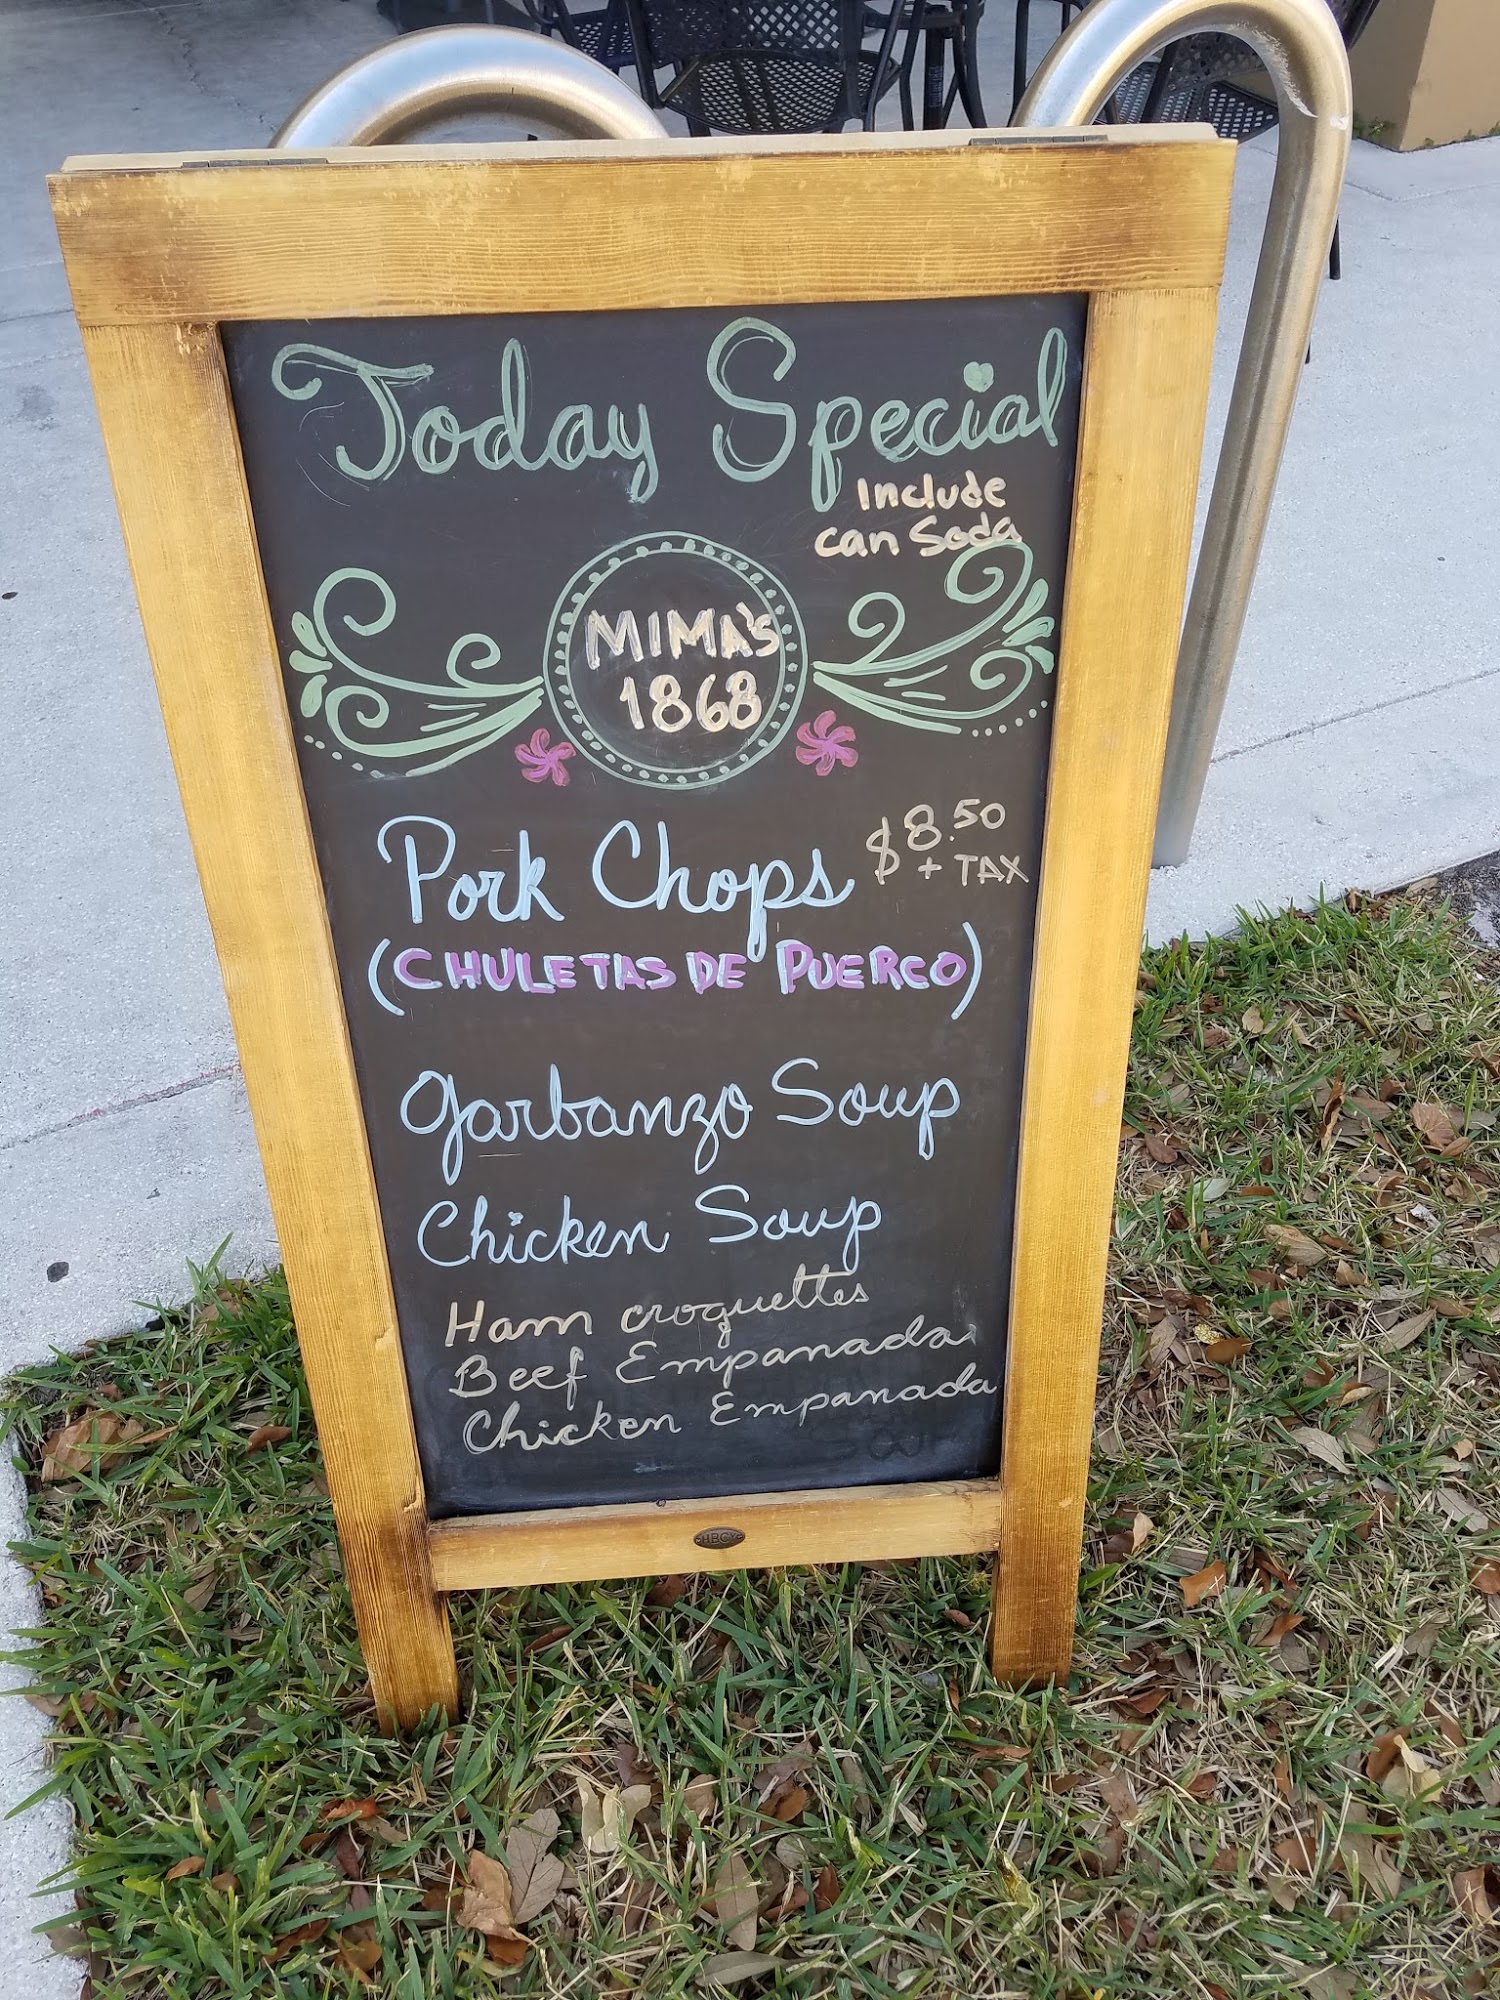 Today Special
Include
can Soda
MIMA'S
1868
Pork Chops $8.50
+ TAX
(CHULETAS DE PUERCO)
Garbanzo Soup
Chicken Soup
Ham croquettes
Beef Empanada
Chicken Empanada
HBCY